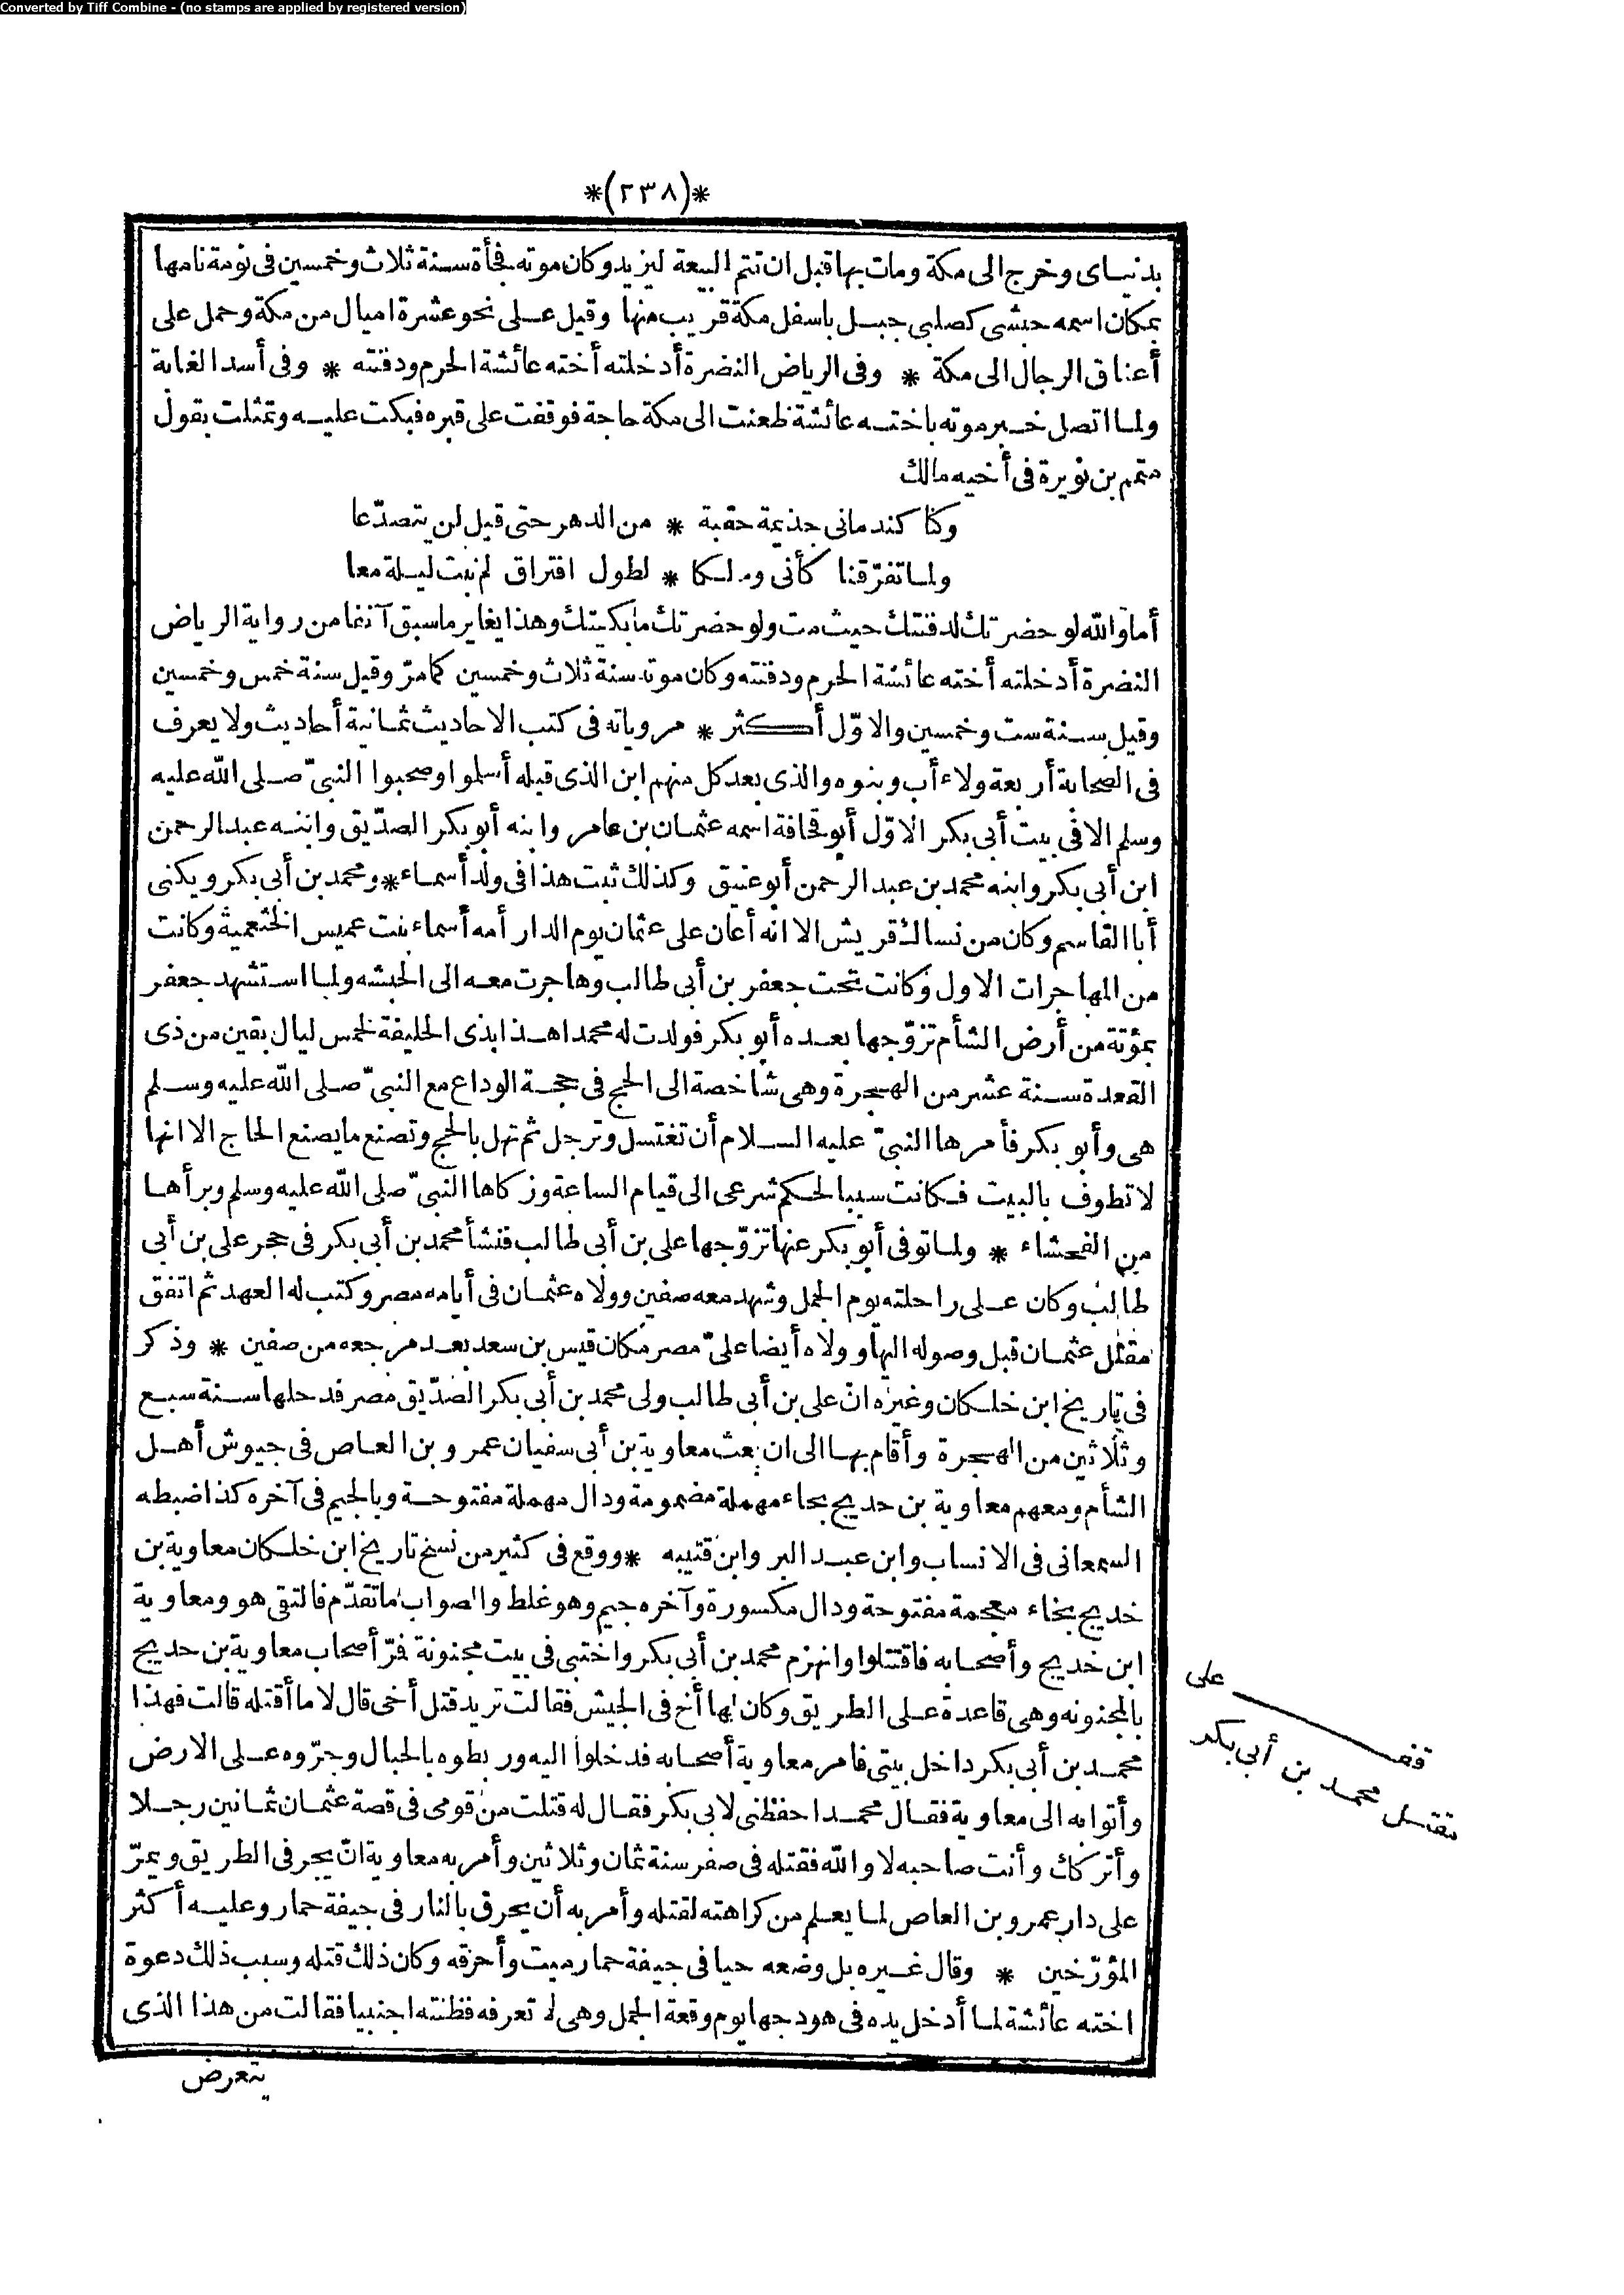 Converted by Tiff Combine - (no stamps are applied by registered version)
*(٢٣٨)*
بدنياى وخرج الى مكة ومات بها قبل ان تتم البيعة ليزيد وكان موته فجأة سنة ثلاث وخمسين فى نومة نامها
بمكان اسمه حبشى كصلبى جبل باسفل مكة قريب منها وقيل على نحو عشرة اميال من مكة وحمل على
أعناق الرجال الى مكة * وفى الرياض النضرة أدخلته أخته عائشة الحرم ودفنته * وفى أسد الغابة
ولما اتصل خبر موته باخته عائشة ظعنت الى مكة حاجة فوقفت على قبره فبكت عليه وتمثلت بقول
متمم بن نويرة فى أخيه مالك
وكنا كندمانى جذيمة حقبة * من الدهر حتى قيل لن يتصدّعا
ولما تفرّقنا كأنى ومالكا * لطول افتراق لم نبت ليلة معا
أما والله لو حضرتك لدفنتك حيث مت ولو حضرتك ما بكيتك وهذا يغاير ما سبق آنفا من رواية الرياض
النضرة أدخلته أخته عائشة الحرم ودفنته وكان موته سنة ثلاث وخمسين كما مرّ وقيل سنة خمس وخمسين
وقيل سنة ست وخمسين والاوّل أكثر * مروياته فى كتب الاحاديث ثمانية أحاديث ولا يعرف
فى الصحابة أربعة ولاء أب وبنوه والذى بعد كل منهم ابن الذى قبله أسلموا وصحبوا النبىّ صلى الله عليه
وسلم الا فى بيت أبى بكر الاوّل أبو قحافة اسمه عثمان بن عامر وابنه أبو بكر الصدّيق وابنه عبد الرحمن
ابن أبى بكر وابنه محمد بن عبد الرحمن أبو عتيق وكذلك ثبت هذا فى ولد أسماء * ومحمد بن أبى بكر ويكنى
أبا القاسم وكان من نساك قريش الا انه أعان على عثمان يوم الدار أمه أسماء بنت عميس الخثعمية وكانت
من المهاجرات الاول وكانت تحت جعفر بن أبى طالب وهاجرت معه الى الحبشه ولما استشهد جعفر
بمؤتة من أرض الشأم تزوّجها بعده أبو بكر فولدت له محمدا هذا بذى الحليفة لخمس ليال بقين من ذى
القعدة سنة عشر من الهجرة وهى شاخصة الى الحج فى حجة الوداع مع النبىّ صلى الله عليه وسلم
هى وأبو بكر فأمرها النبىّ عليه السلام أن تغتسل وترجل ثم تهل بالحج وتصنع ما يصنع الحاج الا انها
لا تطوف بالبيت فكانت سببا لحكم شرعى الى قيام الساعة وزكاها النبىّ صلى الله عليه وسلم وبرأها
من الفحشاء * ولما توفى أبو بكر عنها تزوّجها على بن أبى طالب فنشأ محمد بن أبى بكر فى حجر على بن أبى
طالب وكان على راحلته يوم الجمل وشهد معه صفين وولاه عثمان فى أيامه مصر وكتب له العهد ثم اتفق
مقتل عثمان قبل وصوله اليها وولاه أيضا علىّ مصر مكان قيس بن سعد بعد مرجعه من صفين * وذكر
فى تاريخ ابن خلكان وغيره انّ على بن أبى طالب ولى محمد بن أبى بكر الصدّيق مصر فدخلها سنة سبع
وثلاثين من الهجرة وأقام بها الى ان بعث معاوية بن أبى سفيان عمرو بن العاص فى جيوش أهل
الشأم ومعهم معاوية بن حديج بحاء مهملة مضمومة ودال مهملة مفتوحة وبالجيم فى آخره كذا ضبطه
السمعانى فى الانساب وابن عبد البر وابن قتيبه * ووقع فى كثير من نسخ تاريخ ابن خلكان معاوية بن
خديج بخاء معجمة مفتوحة ودال مكسورة وآخره جيم وهو غلط والصواب ما تقدّم فالتقى هو ومعاوية
ابن خديج وأصحابه فاقتتلوا وانهزم محمد بن أبى بكر واختبى فى بيت مجنونة فرّ أصحاب معاوية بن حديج
بالمجنونه وهى قاعدة على الطريق وكان لها أخ فى الجيش فقالت تريد قتل أخى قال لا ما أقتله قالت فهذا
محمد بن أبى بكر داخل بيتى فامر معاوية أصحابه فدخلوا اليه وربطوه بالحبال وجرّوه على الارض
وأتوا به الى معاوية فقال محمد احفظنى لابى بكر فقال له قتلت من قومى فى قصة عثمان ثمانين رجلا
وأتركك وأنت صاحبه لا والله فقتله فى صفر سنة ثمان وثلاثين وأمر به معاوية انّ يجر فى الطريق ويمرّ
على دار عمرو بن العاص لما يعلم من كراهته لقتله وأمر به أن يحرق بالنار فى جيفة حمار وعليه أكثر
المؤرّخين * وقال غيره بل وضعه حيا فى جيفة حمار ميت وأحرقه وكان ذلك قتله وسبب ذلك دعوة
اخته عائشة لما أدخل يده فى هودجها يوم وقعة الجمل وهى لا تعرفه فظنته اجنبيا فقالت من هذا الذى
يتعرض
قف على
مقتل محمد بن أبى بكر